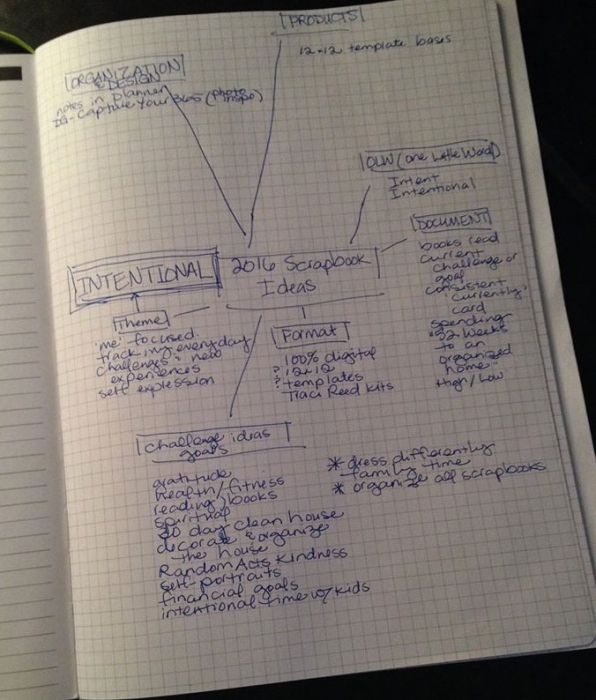 PRODUCTS
12x12 template bases
ORGANIZATION
& DESIGN
notes in planner
IG-Capture Your 365 (photo inspo)
OLW (One Little Word)
Intent
Intentional
DOCUMENT
books read
current
challenge or
goal
consistent
"currently"
card
spending
"52 weeks
to an
organized
home"
High/Low
INTENTIONAL
2016 Scrapbook
Ideas
Theme
'me' focused
tracking everyday
challenges & new
experiences
self expression
Format
100% digital
? 12x12
? templates
Traci Reed kits
Challenge ideas
goals
gratitude
health/fitness
reading/books
spiritual
30 day clean house
decorate & organize
the house
Random Acts Kindness
self-portraits
financial goals
intentional time w/ kids
* dress differently
family time
* organize all scrapbooks